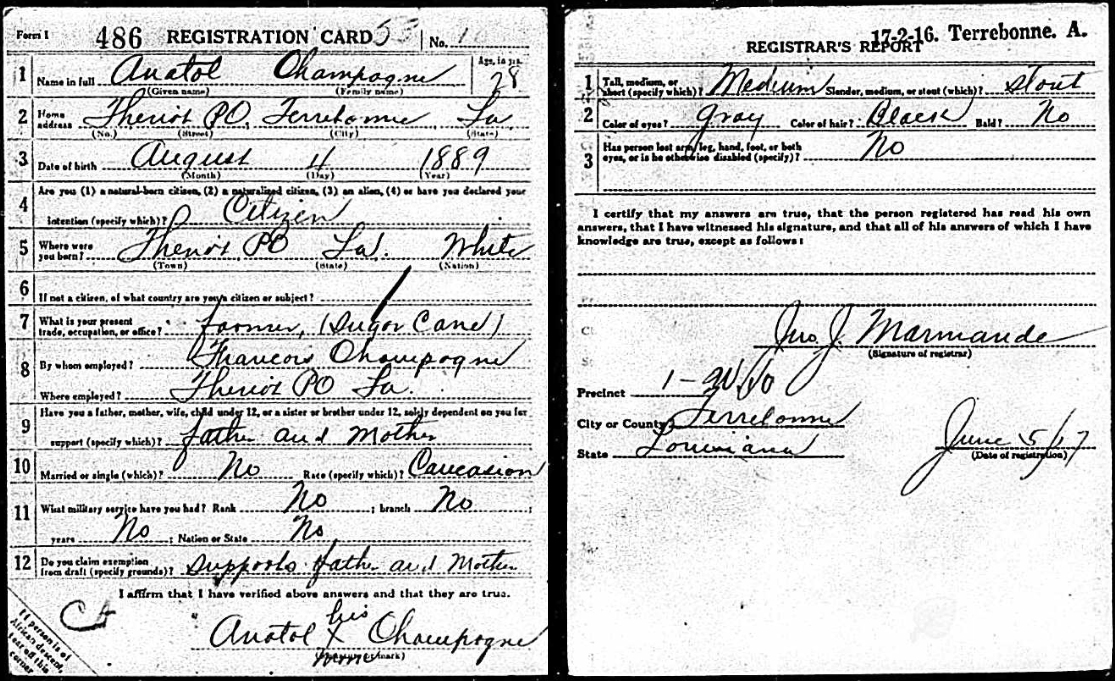 Form 1 486 REGISTRATION CARD 53 No. 1
1 Name in full Anatol Champagne Age, in yrs. 28
(Given name) (Family name)
2 Home address Theriot PO Terrebonne La
(No.) (Street) (City) (State)
3 Date of birth August 4 1889
(Month) (Day) (Year)
4 Are you (1) a natural-born citizen, (2) a naturalized citizen, (3) an alien, (4) or have you declared your
intention (specify which)? Citizen
5 Where were you born? Theriot PO La. White
(Town) (State) (Nation)
6 If not a citizen, of what country are you a citizen or subject? /
7 What is your present trade, occupation, or office? Farmer, (Sugar Cane)
8 By whom employed? Francois Champagne
Where employed? Theriot PO La.
9 Have you a father, mother, wife, child under 12, or a sister or brother under 12, solely dependent on you for
support (specify which)? father and Mother
10 Married or single (which)? No Race (specify which)? Caucasion
11 What military service have you had? Rank No ; branch No ;
years No ; Nation or State No
12 Do you claim exemption from draft (specify grounds)? Supports father and Mother
I affirm that I have verified above answers and that they are true.
If person is of
African descent,
tear off this
corner
his
Anatol X Champagne
(Signature or mark)
17-2-16. Terrebonne. A.
REGISTRAR'S REPORT
1 Tall, medium, or short (specify which)? Medium Slender, medium, or stout (which)? Stout
2 Color of eyes? Gray Color of hair? Black Bald? No
3 Has person lost arm, leg, hand, foot, or both
eyes, or is he otherwise disabled (specify)? No
I certify that my answers are true, that the person registered has read his own
answers, that I have witnessed his signature, and that all of his answers of which I have
knowledge are true, except as follows:
Jno. J. Marmande
(Signature of registrar)
Precinct
City or County Terrebonne
State Louisiana
June 5/17
(Date of registration)